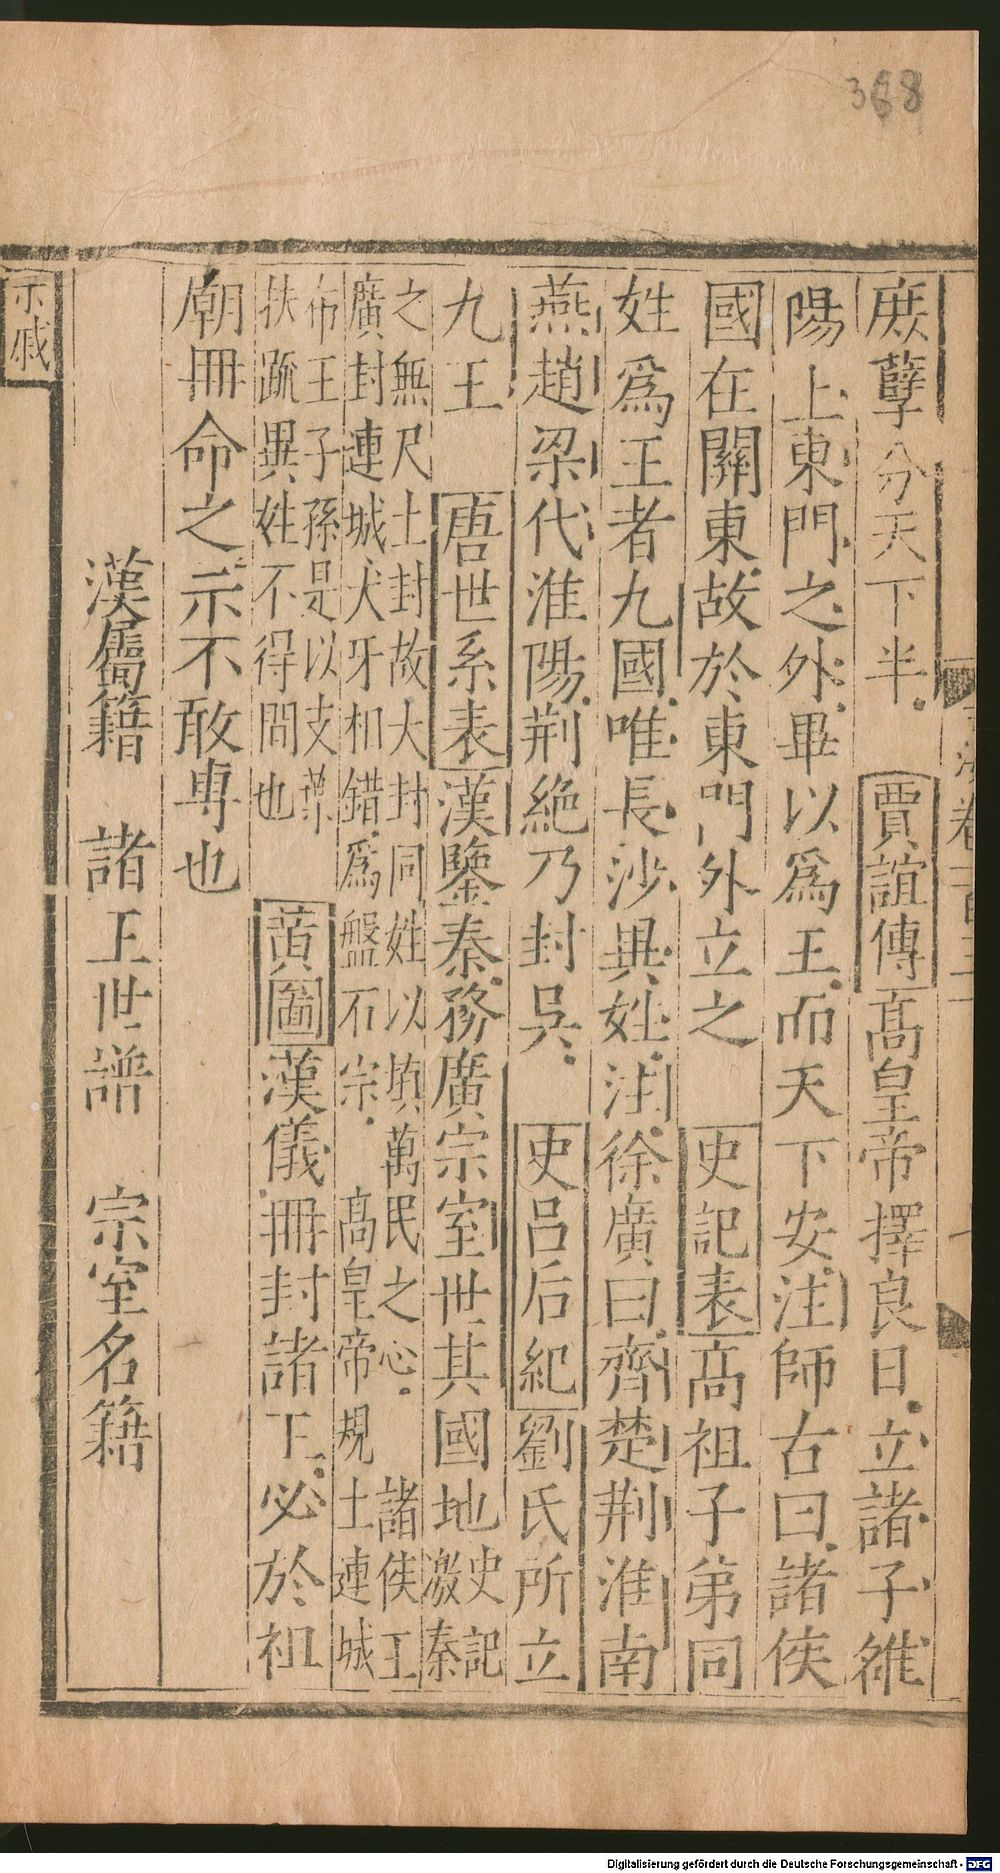 368
庶孽分天下半賈誼傳高皇帝擇良日立諸子雒
陽上東門之外畢以爲王而天下安注師古曰諸侯
國在關東故於東門外立之史記表高祖子弟同
姓爲王者九國唯長沙異姓注徐廣曰齊楚荆淮南
燕趙梁代淮陽荆絶乃封吳史呂后紀劉氏所立
九王 唐世系表漢鑒秦務廣宗室世其國地史記
激秦
之無尺土封故大封同姓以塡萬民之心 諸侯王
廣封連城犬牙相錯爲盤石宗 高皇帝規土連城
布王子孫是以支葉
扶疏異姓不得間也 黄圖漢儀冊封諸王必於祖
廟冊命之示不敢專也
漢屬籍 諸王世譜 宗室名籍
宗戚
Digitalisierung gefördert durch die Deutsche Forschungsgemeinschaft - DFG